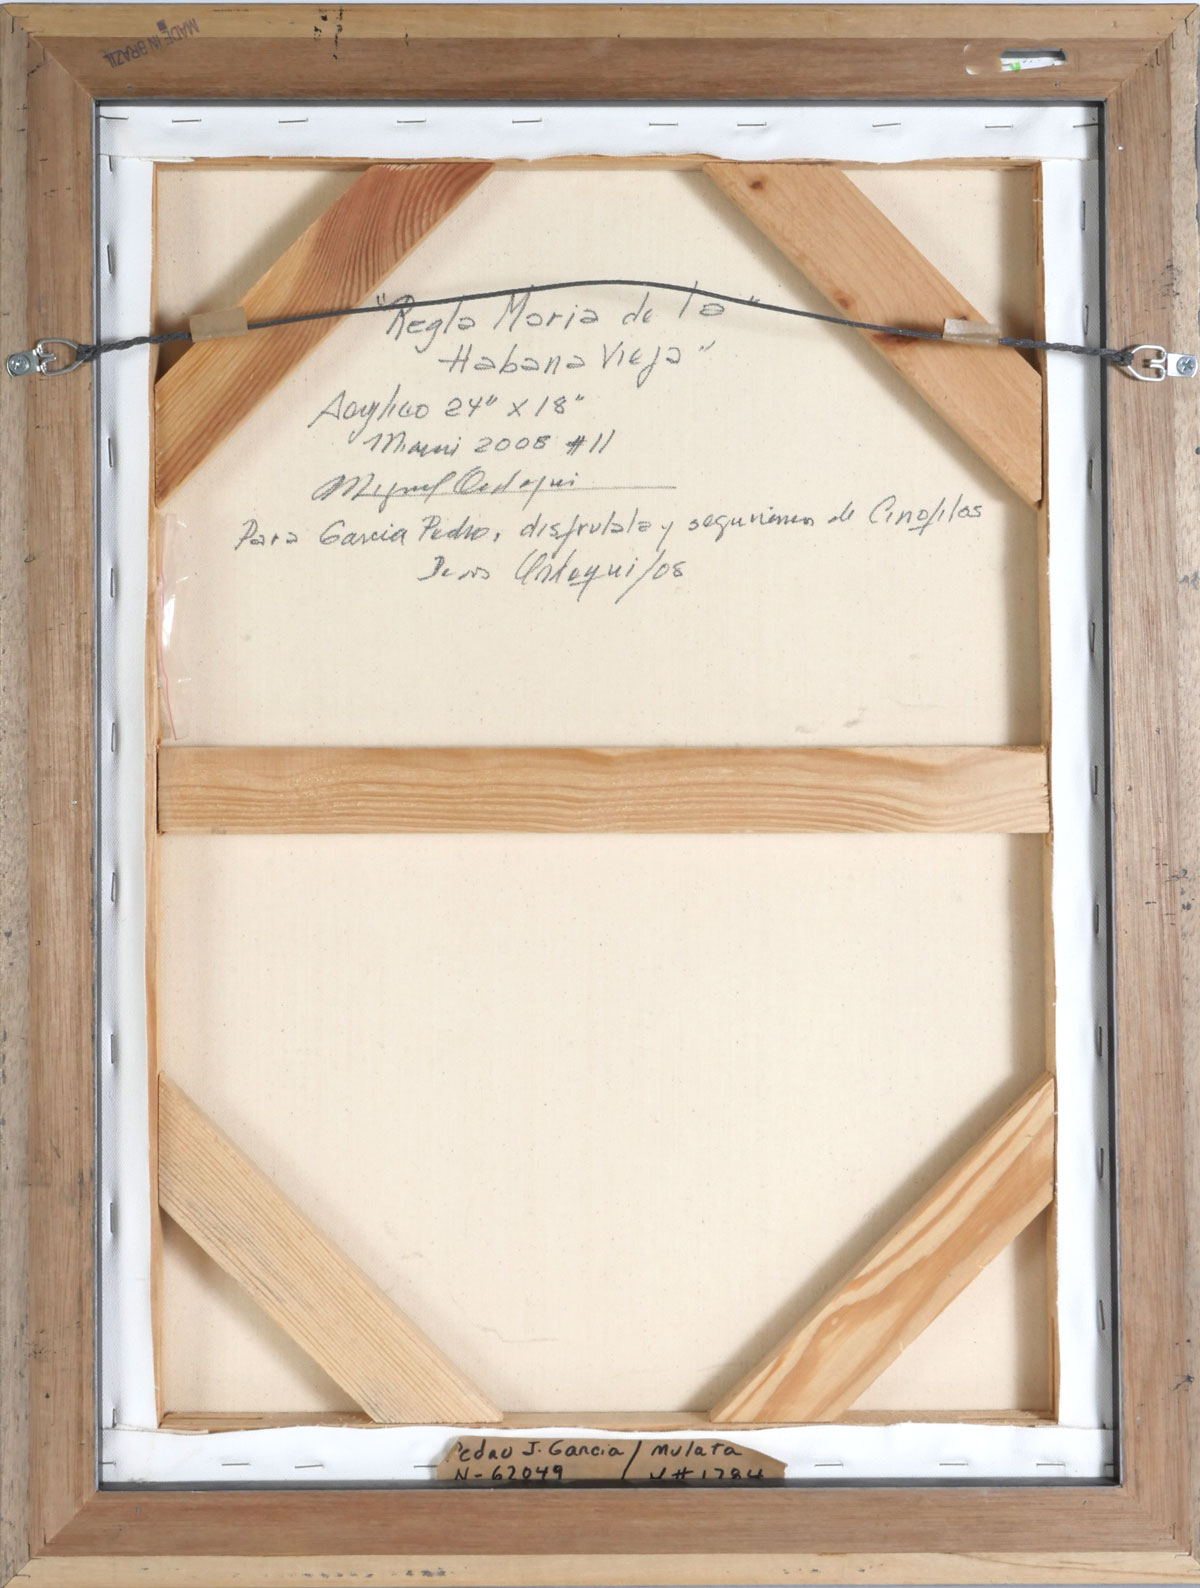 MADE IN BRAZIL
"Regla Maria de la"
Habana Vieja"
Acrylico 24" X 18"
Miami 2008 #11
Miguel Ordoqui
Para Garcia Pedro, disfrutala y seguiremos de Cinofilos
Ordoqui/08
Pedro J. Garcia / mulata
N-62049 / V#1784